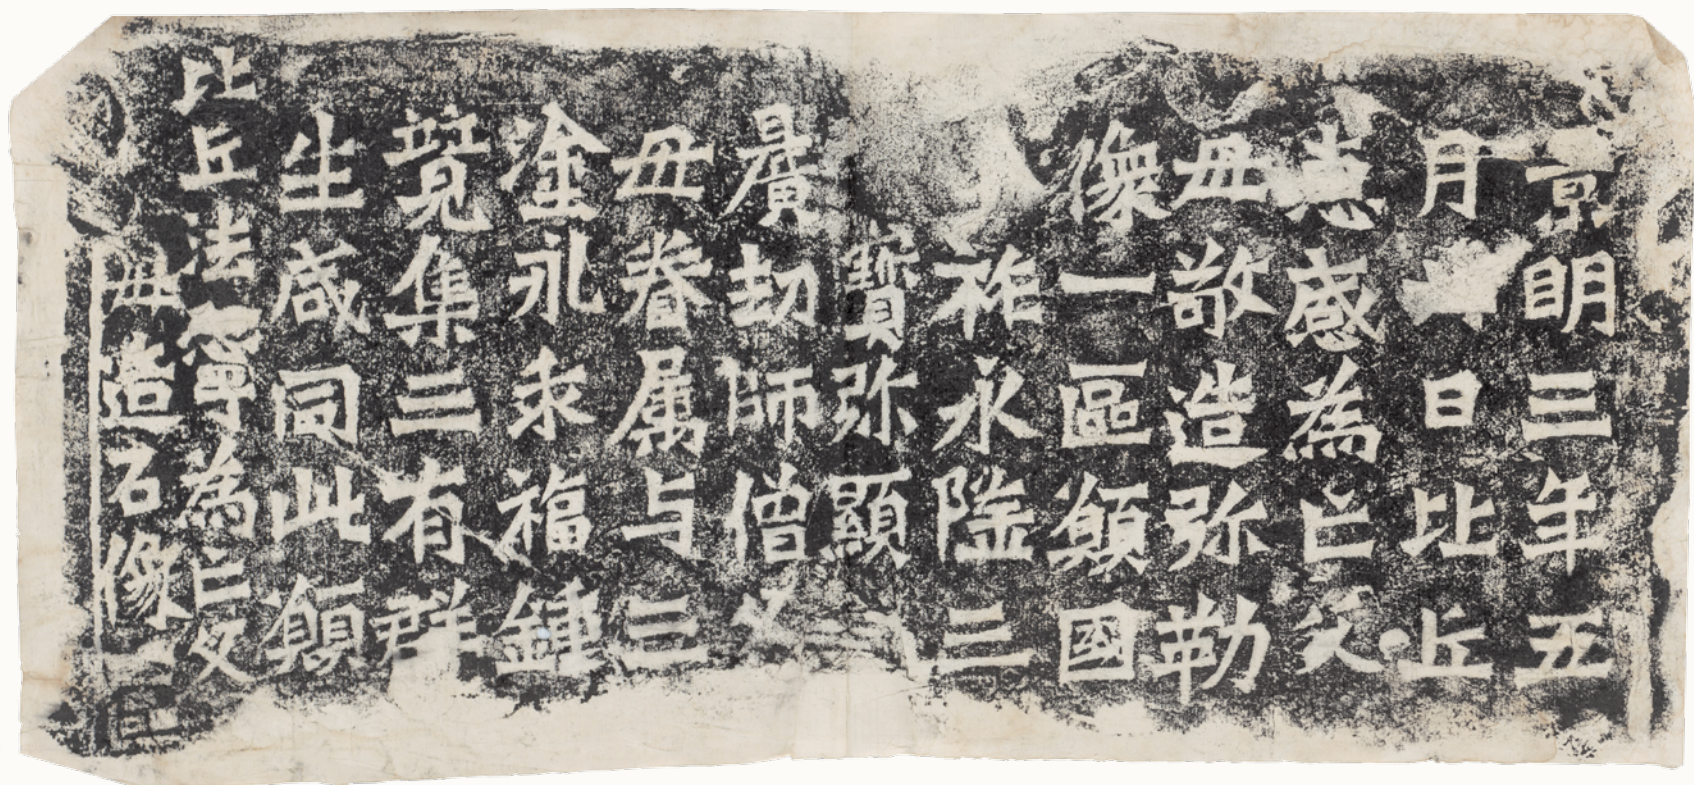 景明三年五
月日比丘
惠感為亡父
母敬造弥勒
像一區願國
祚永隆三
寳弥顯
曠劫師僧父
母眷属与三
塗永乖福鍾
競集三有群
生咸同此願
比丘法寧為亡父
母造石像一區